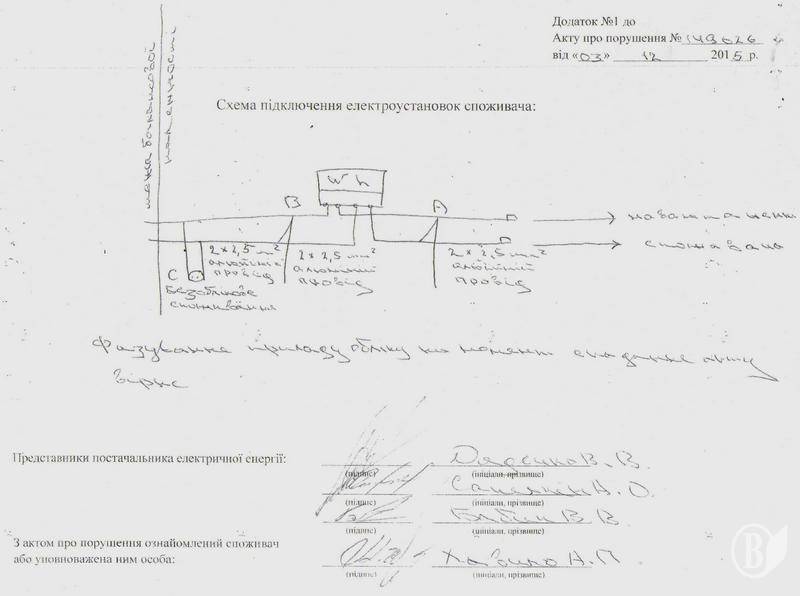 Додаток №1 до
Акту про порушення № 149626
від «03» 12 2015 р.
Схема підключення електроустановок споживача:
межа балансової
належності
Wh
B
A
C
навантаження
споживача
2×2,5 mm²
алюміній
провід
2×2,5 mm²
алюміній
провід
2×2,5 mm²
алюміній
провід
Безоблікове
споживання
Фазування приладу обліку на момент складання акту
вірне
Представники постачальника електричної енергії:
В. В.
(підпис) (ініціали, прізвище)
А. О.
(підпис) (ініціали, прізвище)
В. В.
(підпис) (ініціали, прізвище)
З актом про порушення ознайомлений споживач
або уповноважена ним особа:
А. П.
(підпис) (ініціали, прізвище)
В